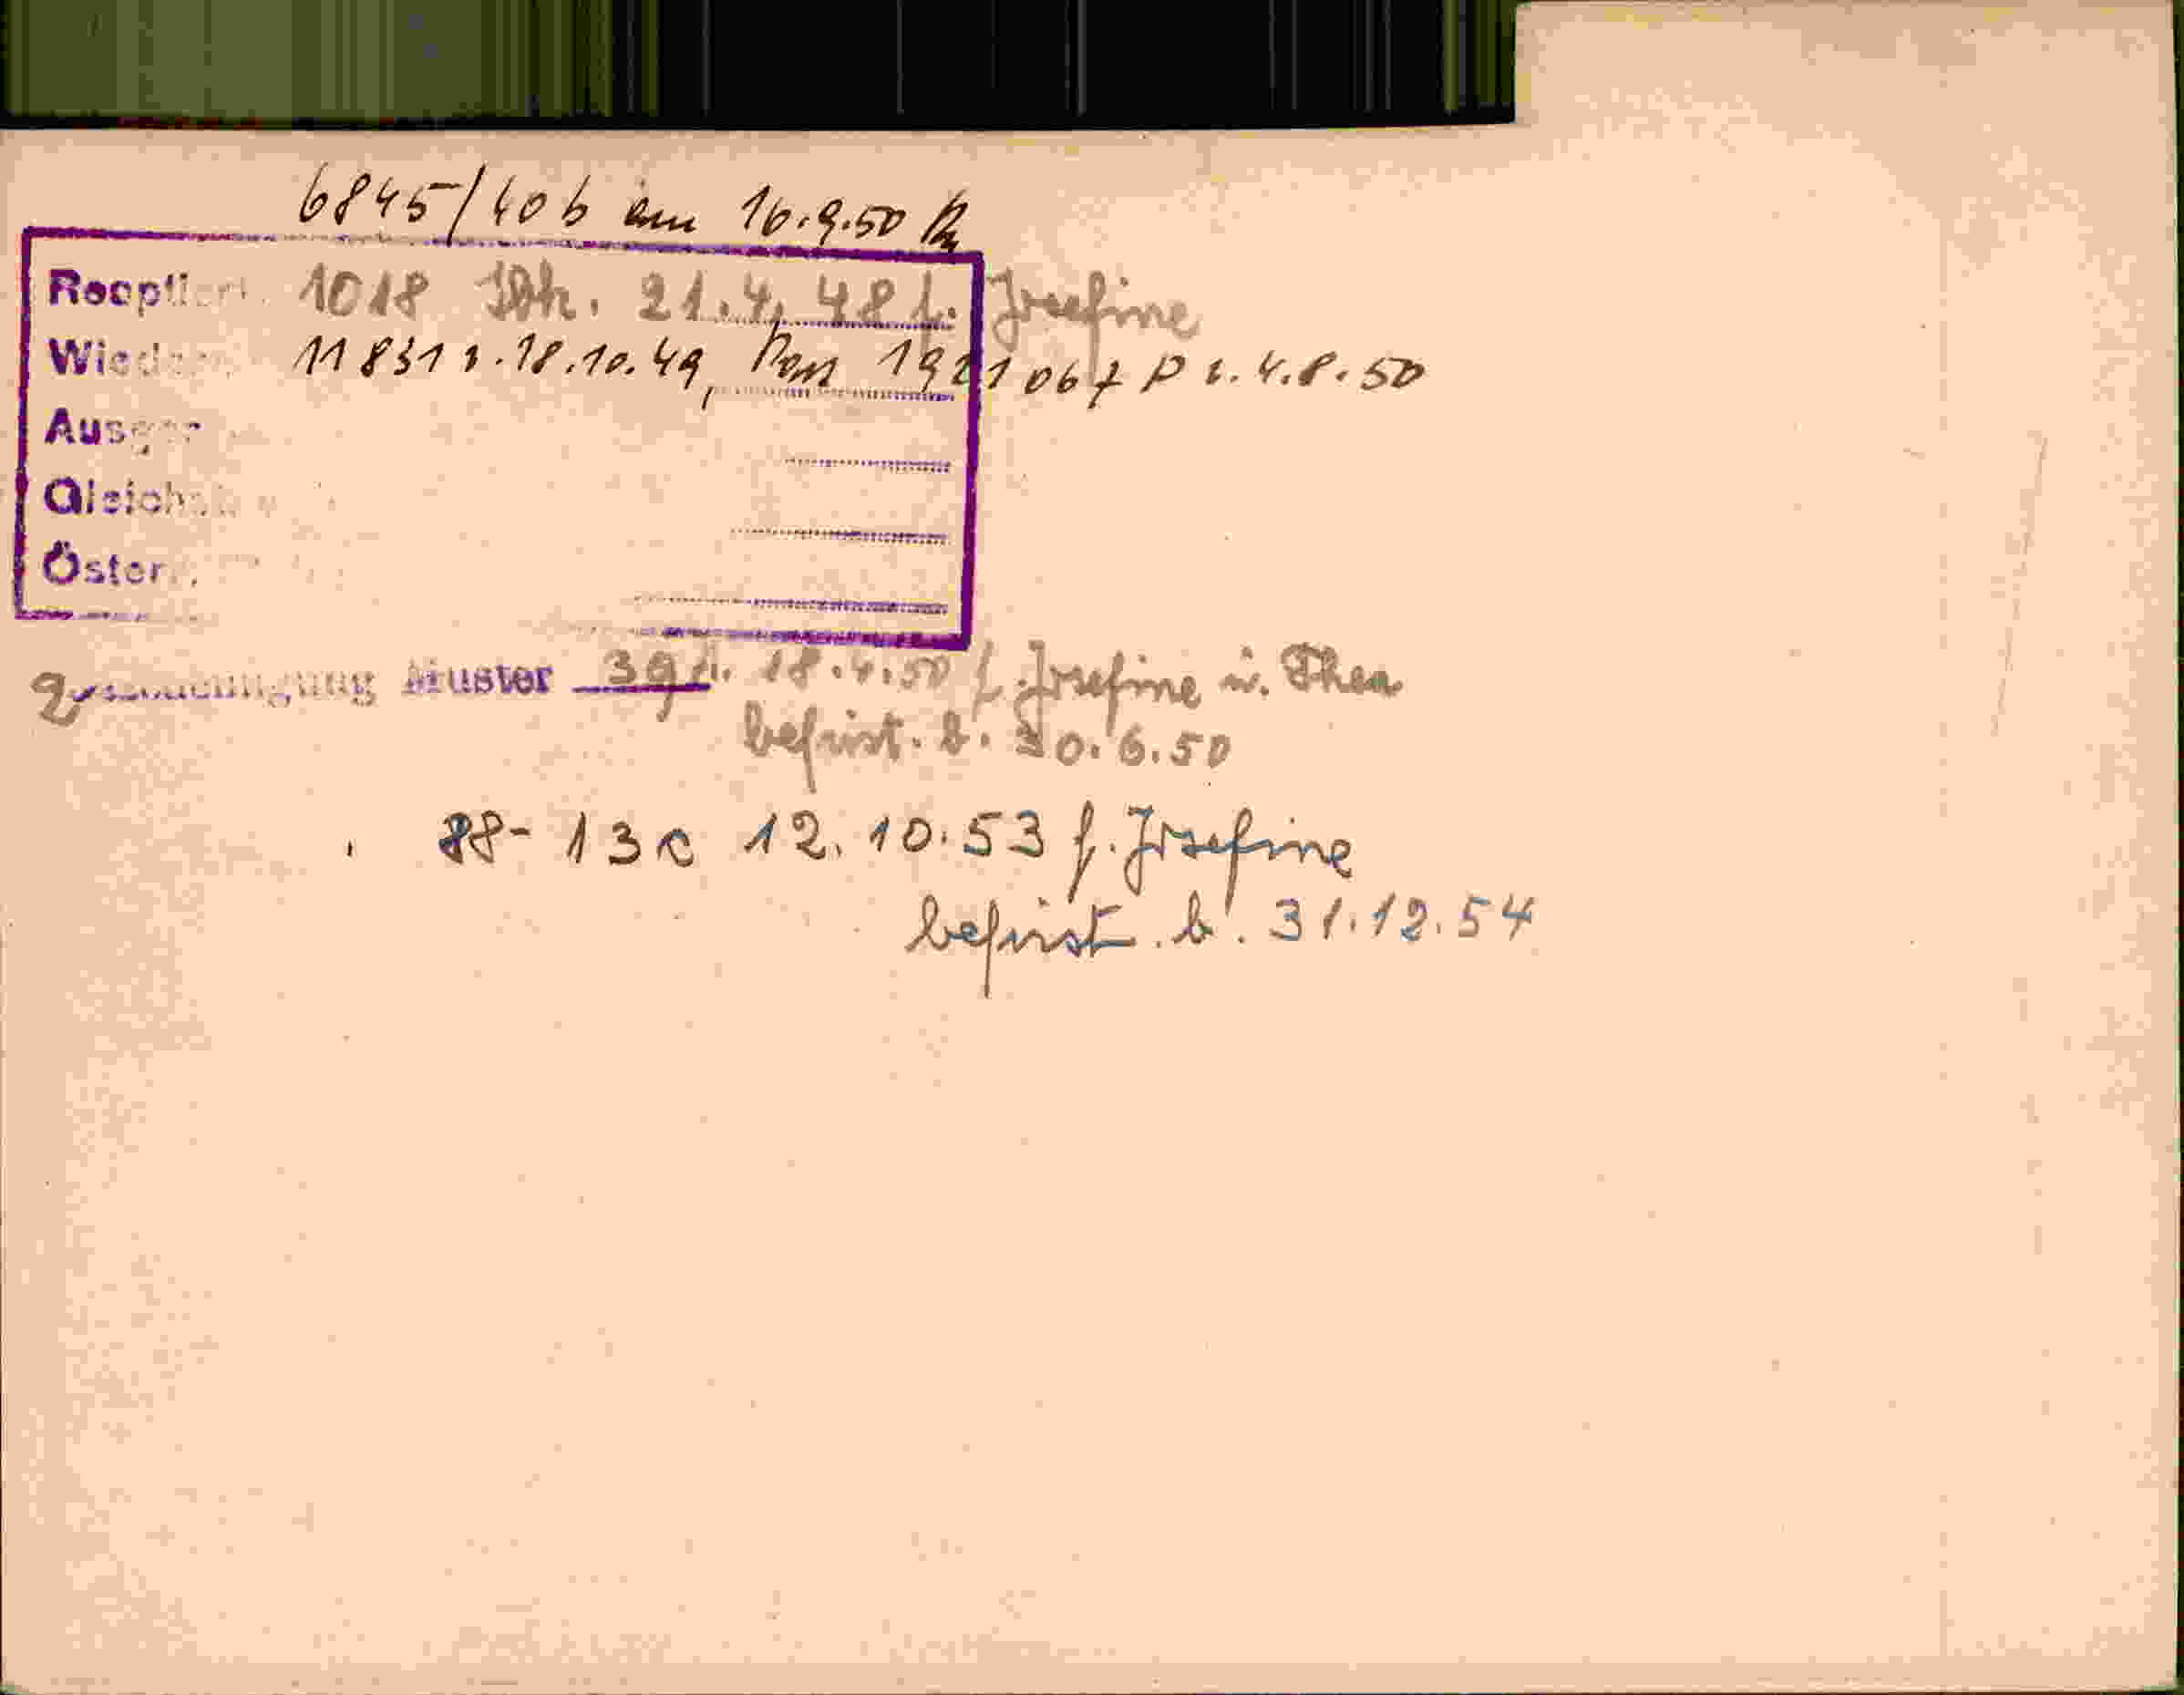 6845/40b am 16.9.50
Reoptiert 1018 Ibk. 21.4.48 f. Josefine
Wieder 11831 v. 18.10.49, Pass 1921067 P v. 4.8.50
Ausge
Gleich
Österr.
Muster 39 18.4.50 f. Josefine u. Thea
befrist. b. 30.6.50
88-13c 12.10.53 f. Josefine
befrist. b. 31.12.54